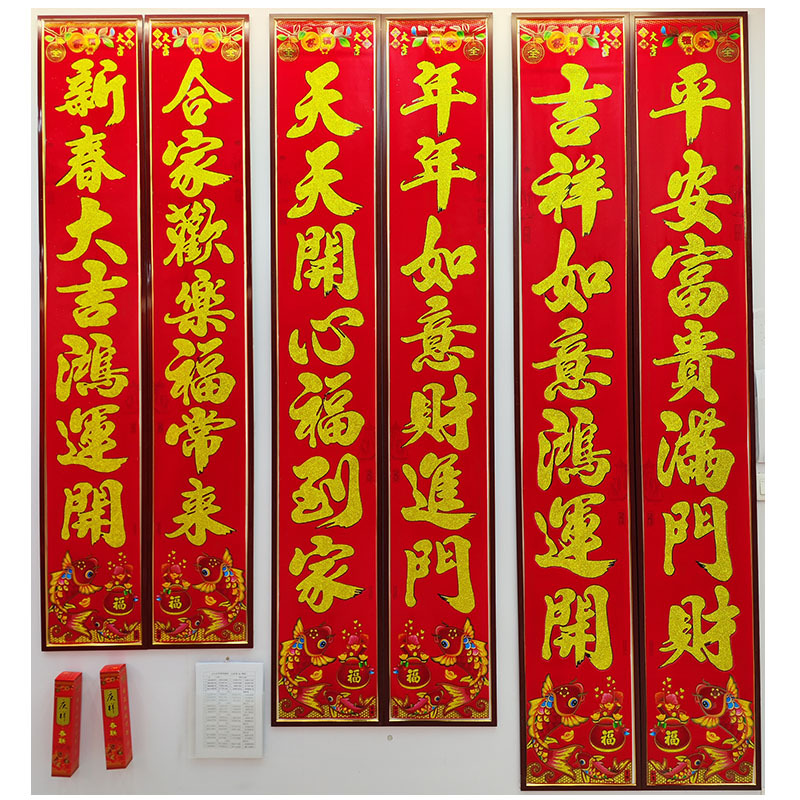 合家歡樂福常来
新春大吉鴻運開
年年如意財進門
天天開心福到家
平安富貴滿門財
吉祥如意鴻運開
大吉
大吉
大吉
福
福
福
福
春联
春联